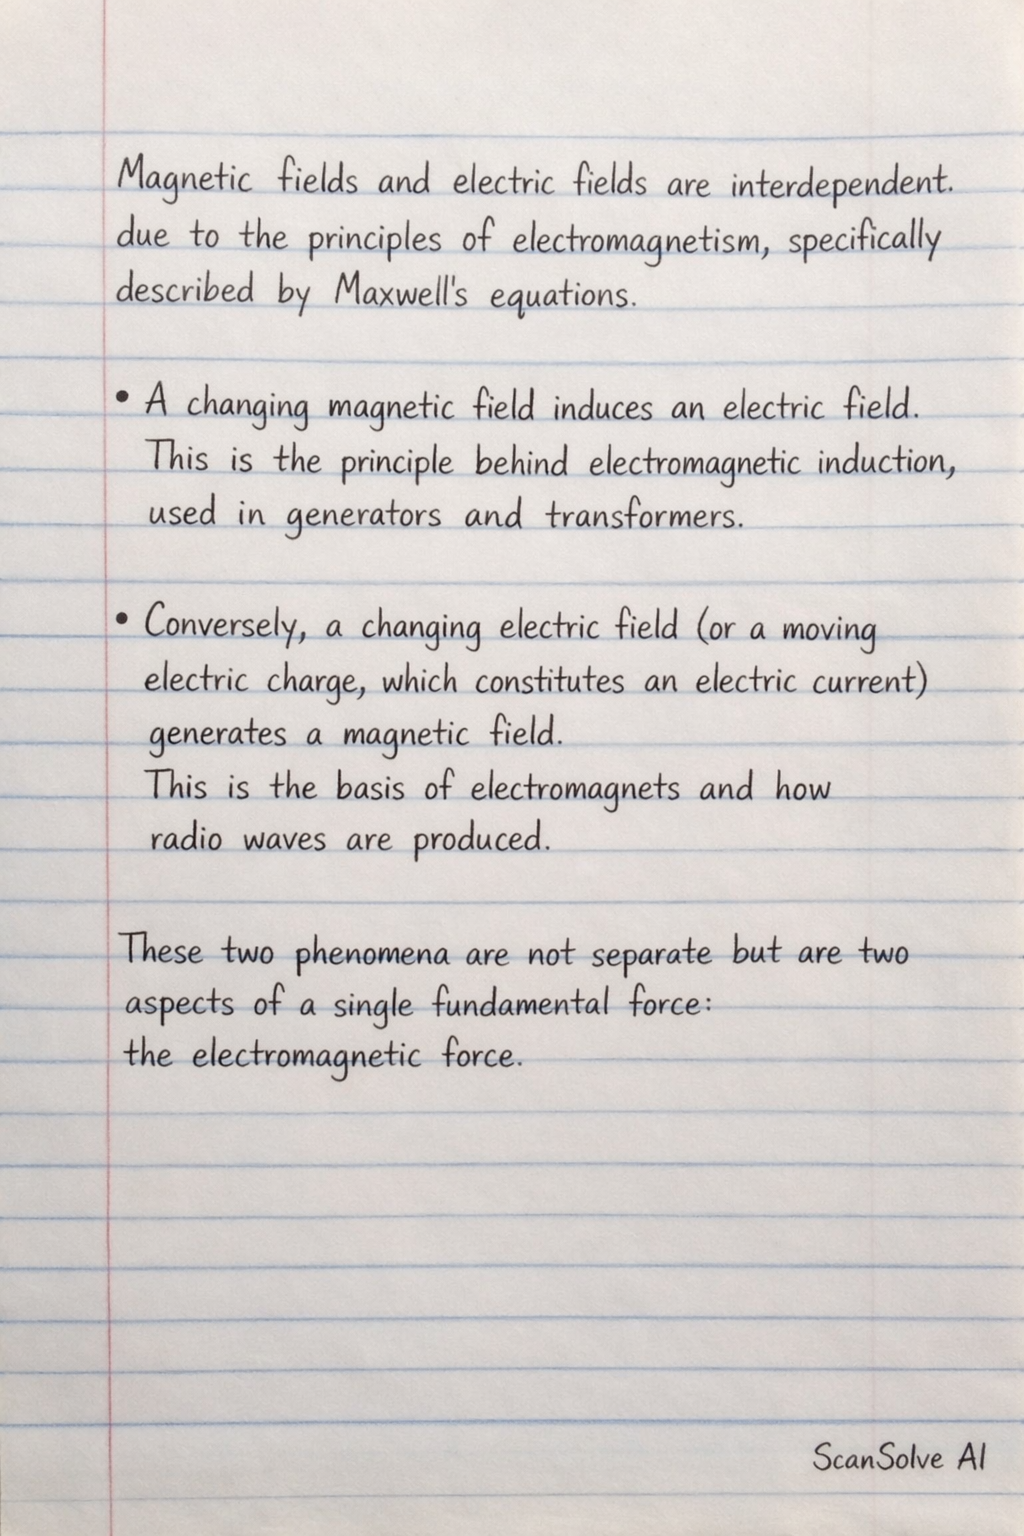 Magnetic fields and electric fields are interdependent.
due to the principles of electromagnetism, specifically
described by Maxwell's equations.
• A changing magnetic field induces an electric field.
This is the principle behind electromagnetic induction,
used in generators and transformers.
• Conversely, a changing electric field (or a moving
electric charge, which constitutes an electric current)
generates a magnetic field.
This is the basis of electromagnets and how
radio waves are produced.
These two phenomena are not separate but are two
aspects of a single fundamental force:
the electromagnetic force.
ScanSolve AI